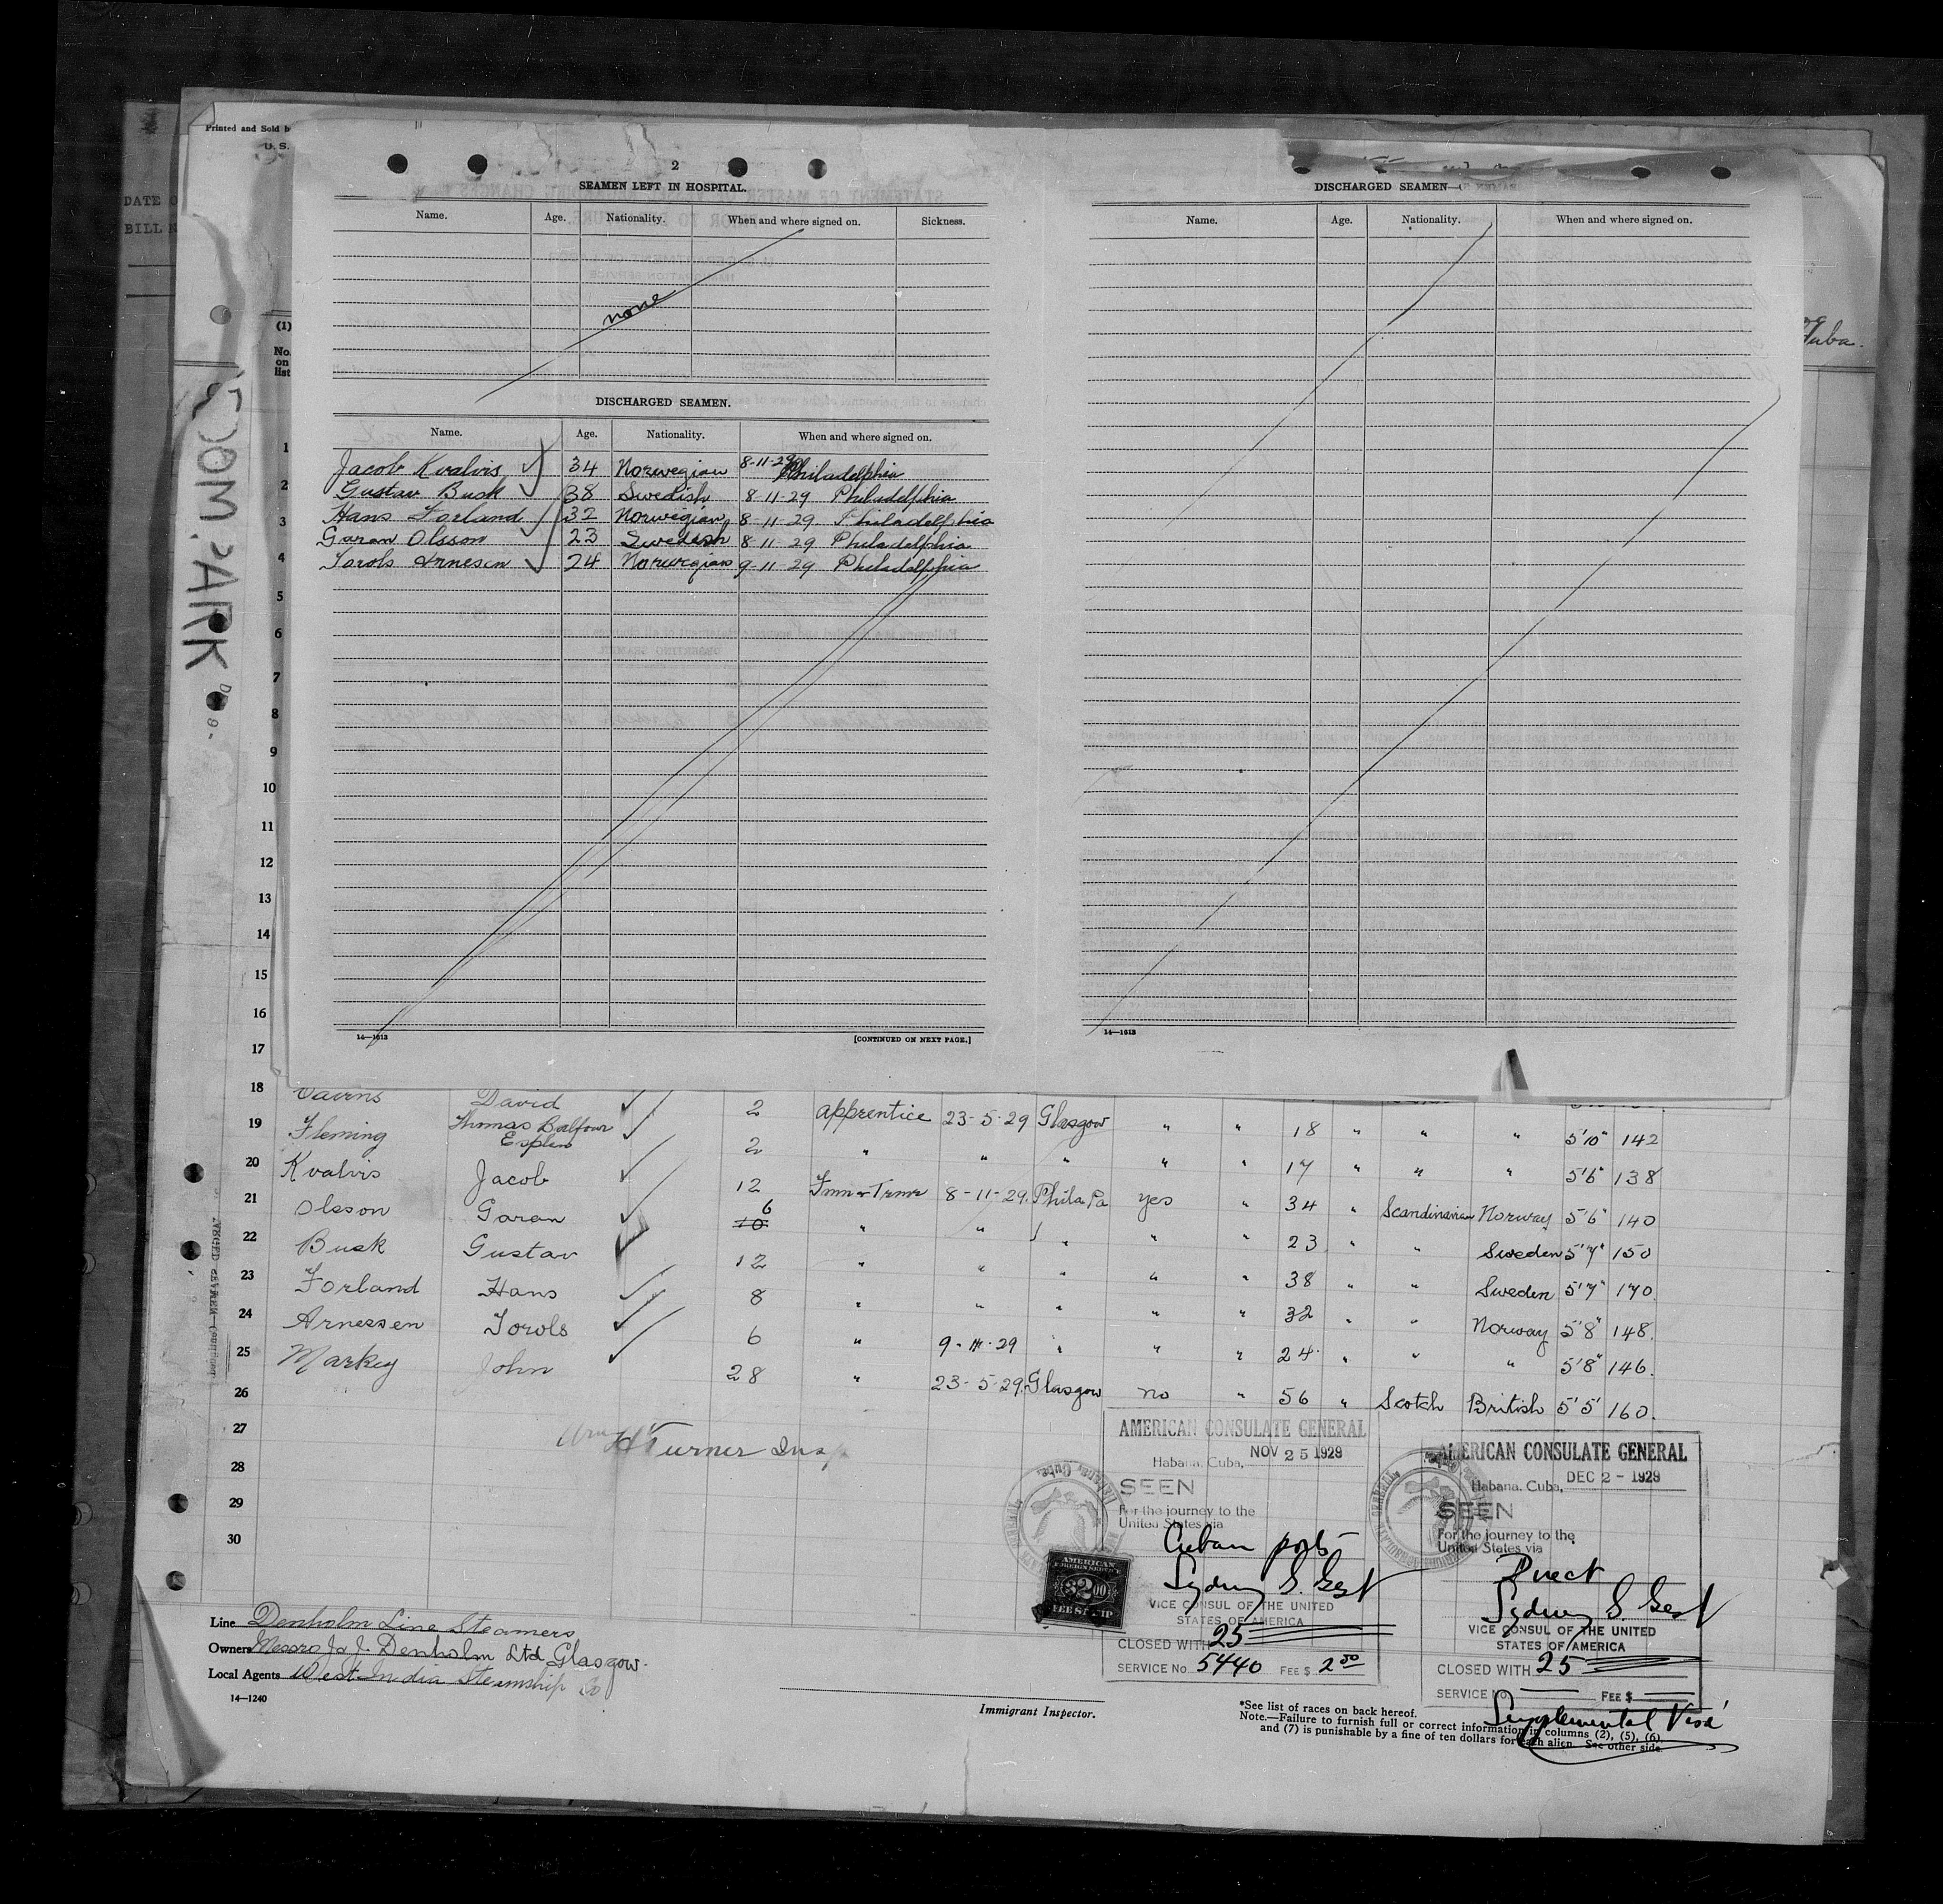 Printed and Sold b
U. S.
DATE O
BILL N
2
SEAMEN LEFT IN HOSPITAL.
Name. Age. Nationality. When and where signed on. Sickness.
none
DISCHARGED SEAMEN.
Name. Age. Nationality. When and where signed on.
Jacob Kvalvis 34 Norwegian 8-11-29 Philadelphia
Gustav Busk 38 Swedish 8-11-29 Philadelphia
Hans Forland 32 Norwegian 8-11-29 Philadelphia
Garan Olsson 23 Swedish 8-11-29 Philadelphia
Torols Arnesen 24 Norwegian 9-11-29 Philadelphia
14—1613
[CONTINUED ON NEXT PAGE.]
DISCHARGED SEAMEN—
Name. Age. Nationality. When and where signed on.
14—1613
Cuba.
OOM PARK
(1)
No. on list
1
2
3
4
5
6
7
8
9
10
11
12
13
14
15
16
17
18 Cairns David 2 apprentice 23-5-29 Glasgow " " 18 " " " 5'10" 142
19 Fleming Thomas Balfour Esplen 2 " " " " " 17 " " " 5'6" 138
20 Kvalvis Jacob 12 Fmn & Trmr 8-11-29. Phila Pa yes " 34 " Scandinavian Norway 5'6" 140
21 Olsson Garan 10 6 " " " " " 23 " " Sweden 5'7" 150
22 Busk Gustav 12 " " " " " 38 " " Sweden 5'7" 170
23 Forland Hans 8 " " " " " 32 " " Norway 5'8" 148.
24 Arnessen Torols 6 " 9-11-29 " " " 24 " " " 5'8" 146.
25 Markey John 28 " 23-5-29. Glasgow no " 56 " Scotch British 5'5" 160.
26
27
28
29
30
H Turner Insp
AMERICAN CONSULATE GENERAL
Habana, Cuba, NOV 25 1929
SEEN
For the journey to the
United States via
Cuban ports
Sydney S. Gest
VICE CONSUL OF THE UNITED
STATES OF AMERICA
CLOSED WITH 25
SERVICE No. 5440 FEE $ 2 00
AMERICAN
FOREIGN SERVICE
$2.00
FEE STAMP
AMERICAN CONSULATE GENERAL
Habana, Cuba, DEC 2 - 1929
SEEN
For the journey to the
United States via
Direct
Sydney S. Gest
VICE CONSUL OF THE UNITED
STATES OF AMERICA
CLOSED WITH 25
SERVICE No. FEE $
Supplemental Visé
Line Denholm Line Steamers
Owners Messrs J & J. Denholm Ltd Glasgow.
Local Agents West India Steamship Co
14—1240
Immigrant Inspector.
*See list of races on back hereof.
Note.—Failure to furnish full or correct information in columns (2), (5), (6),
and (7) is punishable by a fine of ten dollars for each alien. See other side.